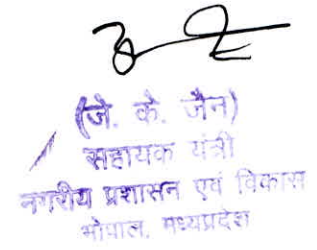 (जे. के. जैन)
सहायक यंत्री
नगरीय प्रशासन एवं विकास
भोपाल, मध्यप्रदेश